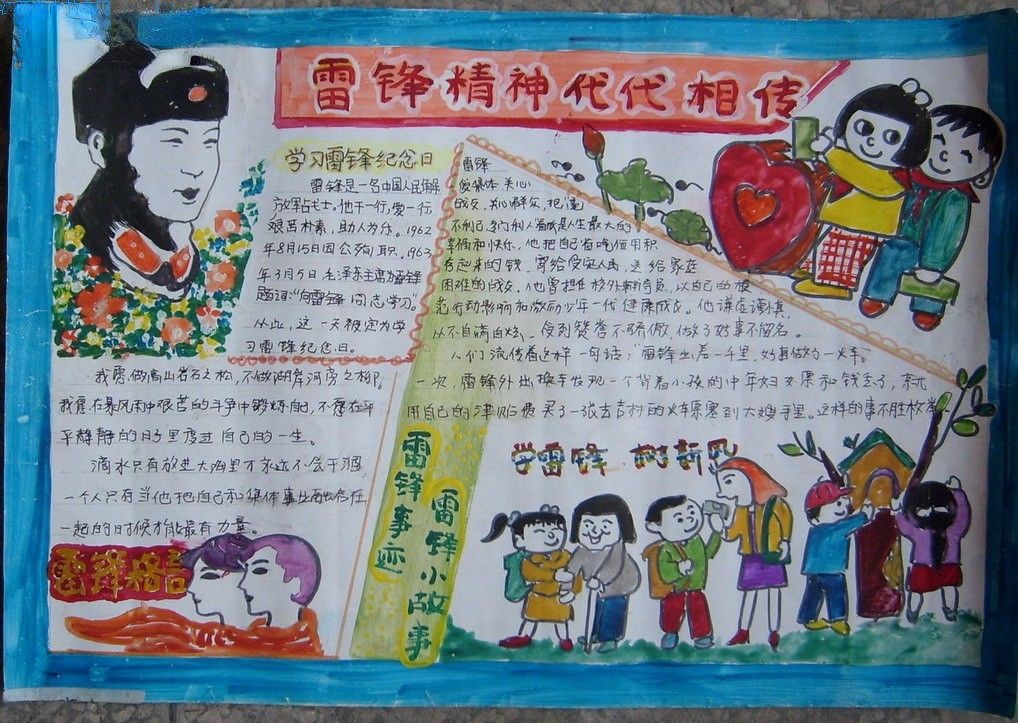 雷锋精神代代相传
学习雷锋纪念日
雷锋是一名中国人民解
放军战士，他干一行，爱一行
艰苦朴素，助人为乐。1962
年8月15日因公殉职。1963
年3月5日毛泽东主席为雷锋
题词:"向雷锋同志学习"。
从此，这一天被定为学
习雷锋纪念日。
我愿做高山岩石之松，不做湖岸河旁之柳。
我愿在暴风雨中艰苦的斗争中锻炼自己，不愿在平
平静静的日子里度过自己的一生。
滴水只有放进大海里才永远不会干涸
一个人只有当他把自己和集体事业融合在
一起的时候才能最有力量。
雷锋格言
雷锋
爱集体 关心
战友，
不利己，人最大的
幸福和快乐，他把自己省吃俭用积
存起来的钱，寄给受灾人民，送给家庭
困难的战友，他曾担任校外辅导员，以自己的模
范行动影响和激励少年一代健康成长。他谦虚谨慎，
从不自满自炫、受到赞誉不骄傲，做了好事不留名。
人们流传着这样一句话："雷锋出差一千里，好事做了一火车"。
一次，雷锋外出换车发现一个背着小孩的中年妇女票和钱丢了，就
用自己的津贴费买了一张去吉林的火车票塞到大嫂手里。这样的事不胜枚举。
雷锋事迹
雷锋小故事
学雷锋 树新风